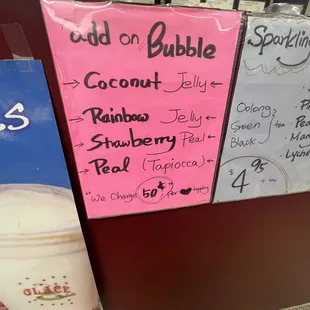 add on Bubble
Coconut Jelly
Rainbow Jelly
Strawberry Peal
Peal (Tapiocca)
"We Charge 50¢ for topping
Sparklin
Oolong
Green tea
Black
Lyche
$4.95
s
GLACE